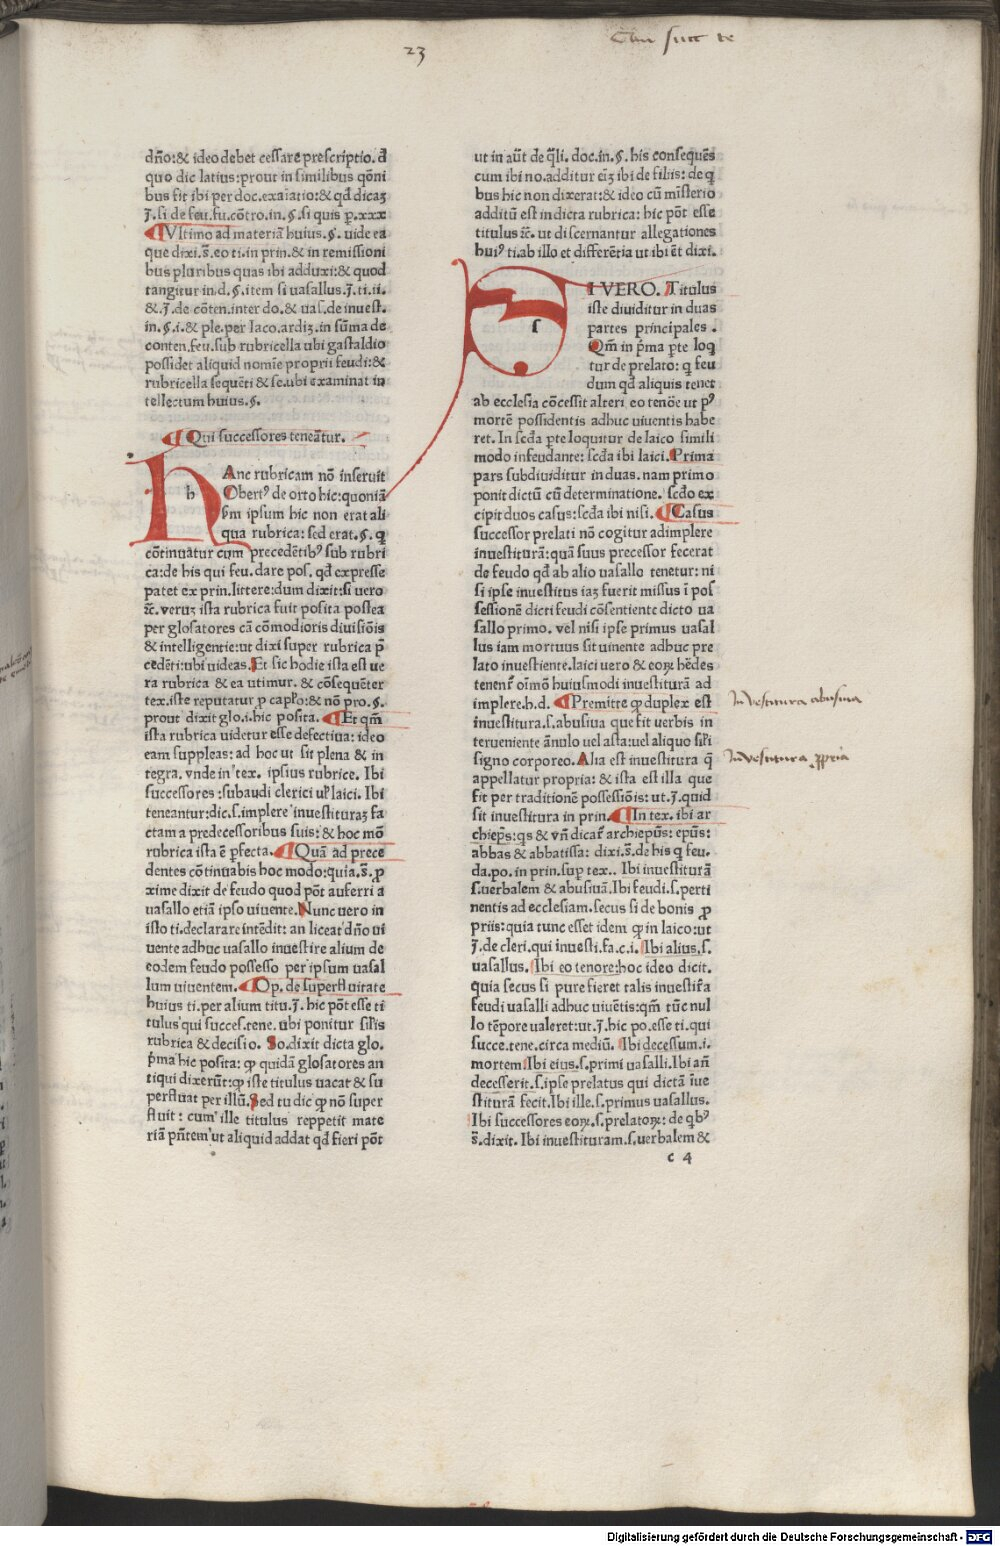 23
dño:& ideo debet cessare prescriptio.đ
quo dic latius:prout in similibus qōni
bus fit ibi per doc.exaīatio:& qđ dicaʒ
J.si de feu.fu.cōtro.in.§.si quis p.xxx
¶Vltimo ad materiā huius.§.uide ea
que dixi.s̄.eo ti.in prin.& in remissioni
bus pluribus quas ibi adduxi:& quod
tangitur in.d.§.item si uasallus.J.ti.ii.
& J.de cōten.inter do.& uas.de inuest.
in.§.i.& ple.per Iaco.ardiʒ.in sūma de
conten.feu.sub rubricella ubi gastaldio
possidet aliquid nomīe proprii feudi:&
rubricella sequēti & se.ubi examinat in
tellectum huius.§.
¶Qui successores teneātur.
h
HAnc rubricam nō inseruit
Obertꝰ de orto hic:quoniā
s̄m ipsum hic non erat ali
qua rubrica:sed erat.§.q̄
cōtinuatur cum precedētibꝰ sub rubri
ca:de his qui feu.dare pos.qđ expresse
patet ex prin.littere:dum dixit:si uero
⁊c̄.veruʒ ista rubrica fuit posita postea
per glosatores cā cōmodioris diuisiōis
& intelligentie:ut dixi super rubrica p̄
cedēti:ubi uideas.Et sic hodie ista est ue
ra rubrica & ea utimur.& cōsequēter
tex.iste reputatur p caplo:& nō pro.§.
prout dixit glo.i.hic posita.¶Et qm̄
ista rubrica uidetur esse defectiua:ideo
eam suppleas:ad hoc ut sit plena & in
tegra.vnde in tex.ipsius rubrice. Ibi
successores:subaudi clerici uel laici. Ibi
teneantur:dic.s.implere inuestituraʒ fa
ctam a predecessoribus suis:& hoc mō
rubrica ista ē pfecta.¶Quā ad prece
dentes cōtinuabis hoc modo:quia.s̄.p
xime dixit de feudo quod pōt auferri a
uasallo etiā ipso uiuente.Nunc uero in
isto ti.declarare intēdit:an liceat dño ui
uente adhuc uasallo inuestire alium de
eodem feudo possesso per ipsum uasal
lum uiuentem.¶Op.de superfluitate
huius ti.per alium titu.J.hic pōt esse ti
tulus qui succes.tene.ubi ponitur silis
rubrica & decisio. So.dixit dicta glo.
p̄ma hic posita:ꝙ quidā glosatores an
tiqui dixerūt:ꝙ iste titulus uacat & su
perfluat per illū.Sed tu dic ꝙ nō super
fluit:cum ille titulus reppetit mate
riā pn̄tem ut aliquid addat qđ fieri pōt
ut in aūt de q̄li.doc.in.§.his consequēs
cum ibi no.additur eiʒ ibi de filiis:de q̄
bus hic non dixerat:& ideo cū mīsterio
additū est in dicta rubrica:hic pōt esse
titulus ⁊c̄.ut discernantur allegationes
huiꝰ ti.ab illo et differētia ut ibi ēt dixi.
s
I VERO. Titulus
iste diuiditur in duas
partes principales.
Qm̄ in p̄ma pte loq̄
tur de prelato:q̄ feu
dum qđ aliquis tenet
ab ecclesia cōcessit alteri eo tenōe ut pꝰ
mortē possidentis adhuc uiuentis habe
ret. In scđa pte loquitur de laico simili
modo infeudante:scđa ibi laici.Prima
pars subdiuiditur in duas.nam primo
ponit dictū cū determinatione. scđo ex
cipit duos casus:scđa ibi nisi.¶Casus
successor prelati nō cogitur adimplere
inuestiturā:quā suus precessor fecerat
de feudo qđ ab alio uasallo tenetur:ni
si ipse inuestitus iaʒ fuerit missus ī pos
sessionē dicti feudi cōsentiente dicto ua
sallo primo.vel nisi ipse primus uasal
lus iam mortuus sit uiuente adhuc pre
lato inuestiente.laici uero & eoꝝ hēdes
tenent̄ oīmō huiusmodi inuestiturā ad
implere.h.d.¶Premitte ꝙ duplex est
inuestitura.s.abusiua que fit uerbis in
terueniente ānulo uel asta:uel aliquo sili
signo corporeo.Alia est inuestitura q̄
appellatur propria:& ista est illa que
fit per traditionē possessiōis:ut.J.quid
sit inuestitura in prin.¶In tex.ibi ar
chiep̄s:qs & vn̄ dicat̄ archiep̄us:ep̄us:
abbas & abbatissa: dixi.s̄.de his q̄ feu.
da.po.in prin.sup tex.. Ibi inuestiturā
s.uerbalem & abusiuā.Ibi feudi.s.perti
nentis ad ecclesiam.secus si de bonis p
priis:quia tunc esset idem ꝙ in laico:ut
J.de cleri.qui inuesti.fa.c.i.Ibi alius.s.
uasallus. Ibi eo tenore:hoc ideo dicit.
quia secus si pure fieret talis inuestit̄a
feudi uasalli adhuc uiuētis:qm̄ tūc nul
lo tēpore ualeret:ut.J.hic po.esse ti.qui
succe.tene.circa mediū. Ibi decessum.i.
mortem.Ibi eius.s.primi uasalli.Ibi an̄
decesserit.s.ipse prelatus qui dictā īue
stiturā fecit.Ibi ille.s.primus uasallus.
Ibi successores eoꝝ.s.prelatoꝝ:de qbꝰ
s̄.dixit. Ibi inuestituram.s.uerbalem &
c 4
Investitura abusiua
Investitura ꝓpria
Digitalisierung gefördert durch die Deutsche Forschungsgemeinschaft - DFG